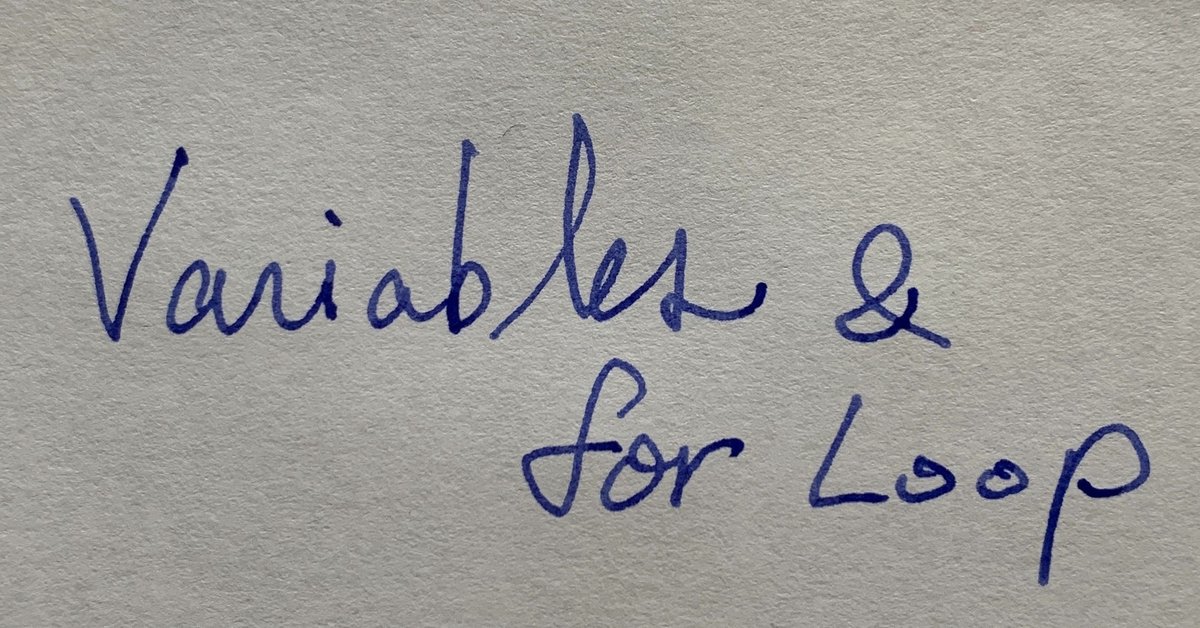 Variables &
for Loop